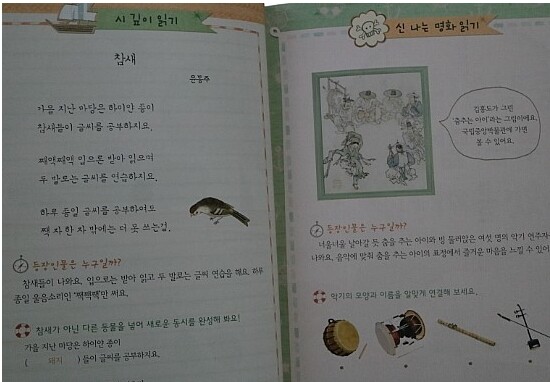 시 깊이 읽기
참새
윤동주
가을 지난 마당은 하이얀 종이
참새들이 글씨를 공부하지요.
째액째액 입으론 받아 읽으며
두 발로는 글씨를 연습하지요.
하루 종일 글씨를 공부하여도
짹 자 한 자 밖에는 더 못 쓰는걸.
등장인물은 누구일까?
참새들이 나와요. 입으로는 받아 읽고 두 발로는 글씨 연습을 해요. 하루
종일 울음소리인 "짹짹짹"만 써요.
참새가 아닌 다른 동물을 넣어 새로운 동시를 완성해 봐요!
가을 지난 마당은 하이얀 종이
( 돼지 )들이 글씨를 공부하지요.
신 나는 명화 읽기
김홍도가 그린
'춤추는 아이'라는 그림이에요.
국립중앙박물관에 가면
볼 수 있어요.
등장인물은 누구일까?
너울너울 날아갈 듯 춤을 추는 아이와 빙 둘러앉은 여섯 명의 악기 연주자가
나와요. 음악에 맞춰 춤을 추는 아이의 표정에서 즐거운 마음을 느낄 수 있어
악기의 모양과 이름을 알맞게 연결해 보세요.